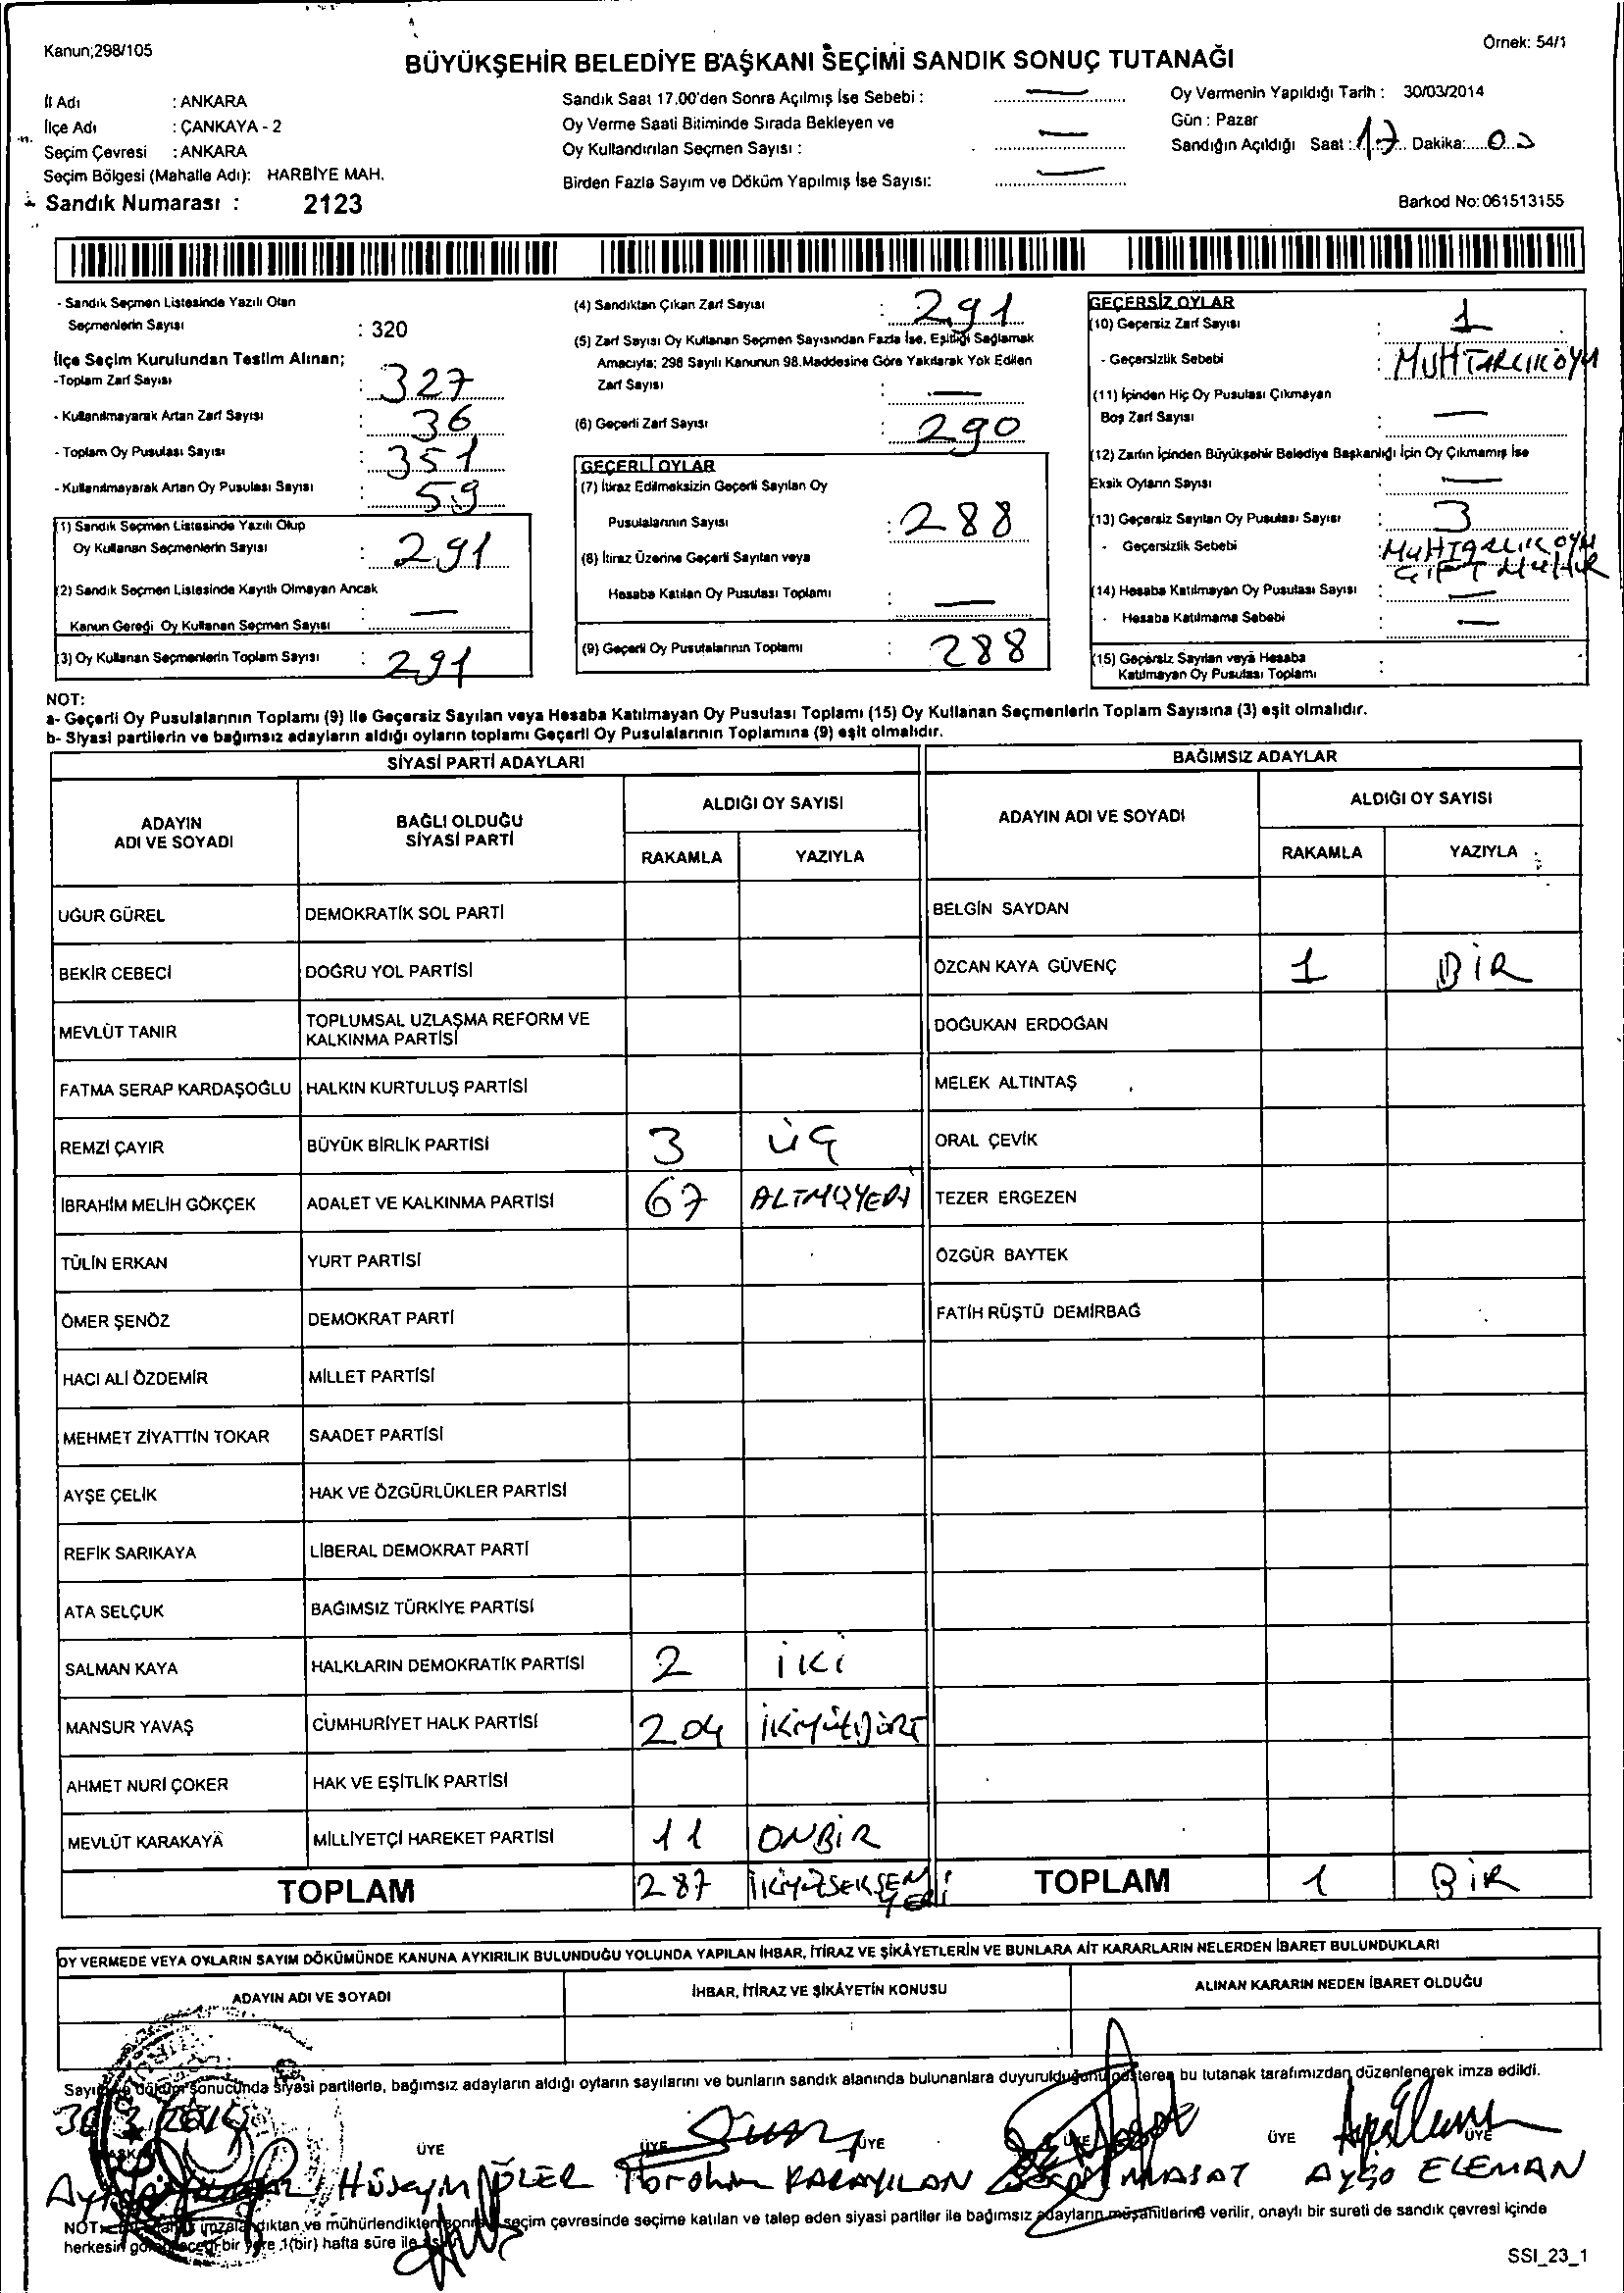 Kanun;298/105
Örnek: 54/1
BÜYÜKŞEHİR BELEDİYE BAŞKANI SEÇİMİ SANDIK SONUÇ TUTANAĞI
İl Adı : ANKARA
İlçe Adı : ÇANKAYA - 2
Seçim Çevresi : ANKARA
Seçim Bölgesi (Mahalle Adı): HARBİYE MAH.
Sandık Numarası : 2123
Sandık Saat 17.00'den Sonra Açılmış İse Sebebi : —
Oy Verme Saati Bitiminde Sırada Bekleyen ve
Oy Kullandırılan Seçmen Sayısı : —
Birden Fazla Sayım ve Döküm Yapılmış İse Sayısı: —
Oy Vermenin Yapıldığı Tarih : 30/03/2014
Gün : Pazar
Sandığın Açıldığı Saat : 17 Dakika: 00
Barkod No: 061513155
- Sandık Seçmen Listesinde Yazılı Olan
Seçmenlerin Sayısı : 320
İlçe Seçim Kurulundan Teslim Alınan;
-Toplam Zarf Sayısı : 327
- Kullanılmayarak Artan Zarf Sayısı : 36
- Toplam Oy Pusulası Sayısı : 351
- Kullanılmayarak Artan Oy Pusulası Sayısı : 59
(1) Sandık Seçmen Listesinde Yazılı Olup
Oy Kullanan Seçmenlerin Sayısı : 291
(2) Sandık Seçmen Listesinde Kayıtlı Olmayan Ancak
Kanun Gereği Oy Kullanan Seçmen Sayısı : —
(3) Oy Kullanan Seçmenlerin Toplam Sayısı : 291
(4) Sandıktan Çıkan Zarf Sayısı : 291
(5) Zarf Sayısı Oy Kullanan Seçmen Sayısından Fazla İse, Eşitliği Sağlamak
Amacıyla; 298 Sayılı Kanunun 98.Maddesine Göre Yakılarak Yok Edilen
Zarf Sayısı : —
(6) Geçerli Zarf Sayısı : 290
GEÇERLİ OYLAR
(7) İtiraz Edilmeksizin Geçerli Sayılan Oy
Pusulalarının Sayısı : 288
(8) İtiraz Üzerine Geçerli Sayılan veya
Hesaba Katılan Oy Pusulası Toplamı : —
(9) Geçerli Oy Pusulalarının Toplamı : 288
GEÇERSİZ OYLAR
(10) Geçersiz Zarf Sayısı : 1
- Geçersizlik Sebebi : MUHTARLIK OYU
(11) İçinden Hiç Oy Pusulası Çıkmayan
Boş Zarf Sayısı : —
(12) Zarfın İçinden Büyükşehir Belediye Başkanlığı İçin Oy Çıkmamış İse
Eksik Oyların Sayısı : —
(13) Geçersiz Sayılan Oy Pusulası Sayısı : 3
- Geçersizlik Sebebi : MUHTARLIK OYU
ÇİFT MÜHÜR
(14) Hesaba Katılmayan Oy Pusulası Sayısı : —
- Hesaba Katılmama Sebebi : —
(15) Geçersiz Sayılan veya Hesaba
Katılmayan Oy Pusulası Toplamı :
NOT:
a- Geçerli Oy Pusulalarının Toplamı (9) ile Geçersiz Sayılan veya Hesaba Katılmayan Oy Pusulası Toplamı (15) Oy Kullanan Seçmenlerin Toplam Sayısına (3) eşit olmalıdır.
b- Siyasi partilerin ve bağımsız adayların aldığı oyların toplamı Geçerli Oy Pusulalarının Toplamına (9) eşit olmalıdır.
SİYASİ PARTİ ADAYLARI
ADAYIN ADI VE SOYADI
BAĞLI OLDUĞU SİYASİ PARTİ
ALDIĞI OY SAYISI
RAKAMLA YAZIYLA
UĞUR GÜREL DEMOKRATİK SOL PARTİ
BEKİR CEBECİ DOĞRU YOL PARTİSİ
MEVLÜT TANIR TOPLUMSAL UZLAŞMA REFORM VE KALKINMA PARTİSİ
FATMA SERAP KARDAŞOĞLU HALKIN KURTULUŞ PARTİSİ
REMZİ ÇAYIR BÜYÜK BİRLİK PARTİSİ 3 ÜÇ
İBRAHİM MELİH GÖKÇEK ADALET VE KALKINMA PARTİSİ 67 ALTMIŞYEDİ
TÜLİN ERKAN YURT PARTİSİ
ÖMER ŞENÖZ DEMOKRAT PARTİ
HACI ALİ ÖZDEMİR MİLLET PARTİSİ
MEHMET ZİYATTİN TOKAR SAADET PARTİSİ
AYŞE ÇELİK HAK VE ÖZGÜRLÜKLER PARTİSİ
REFİK SARIKAYA LİBERAL DEMOKRAT PARTİ
ATA SELÇUK BAĞIMSIZ TÜRKİYE PARTİSİ
SALMAN KAYA HALKLARIN DEMOKRATİK PARTİSİ 2 İKİ
MANSUR YAVAŞ CUMHURİYET HALK PARTİSİ 204 İKİYÜZDÖRT
AHMET NURİ ÇOKER HAK VE EŞİTLİK PARTİSİ
MEVLÜT KARAKAYA MİLLİYETÇİ HAREKET PARTİSİ 11 ONBİR
TOPLAM 287 İKİYÜZSEKSEN YEDİ
BAĞIMSIZ ADAYLAR
ADAYIN ADI VE SOYADI
ALDIĞI OY SAYISI
RAKAMLA YAZIYLA
BELGİN SAYDAN
ÖZCAN KAYA GÜVENÇ 1 BİR
DOĞUKAN ERDOĞAN
MELEK ALTINTAŞ
ORAL ÇEVİK
TEZER ERGEZEN
ÖZGÜR BAYTEK
FATİH RÜŞTÜ DEMİRBAĞ
TOPLAM 1 BİR
OY VERMEDE VEYA OYLARIN SAYIM DÖKÜMÜNDE KANUNA AYKIRILIK BULUNDUĞU YOLUNDA YAPILAN İHBAR, İTİRAZ VE ŞİKÂYETLERİN VE BUNLARA AİT KARARLARIN NELERDEN İBARET BULUNDUKLARI
ADAYIN ADI VE SOYADI
İHBAR, İTİRAZ VE ŞİKÂYETİN KONUSU
ALINAN KARARIN NEDEN İBARET OLDUĞU
Sayım ve döküm sonucunda siyasi partilerle, bağımsız adayların aldığı oyların sayılarını ve bunların sandık alanında bulunanlara duyurulduğunu gösteren bu tutanak tarafımızdan düzenlenerek imza edildi.
ÜYE ÜYE ÜYE ÜYE ÜYE ÜYE
Hüseyin İbrahim KARAYILAN Ayşe ELEMAN
seçim çevresinde seçime katılan ve talep eden siyasi partiler ile bağımsız adayların müşahitlerine verilir, onaylı bir sureti de sandık çevresi içinde
herkesin bir yere 1(bir) hafta süre ile
SSI_23_1